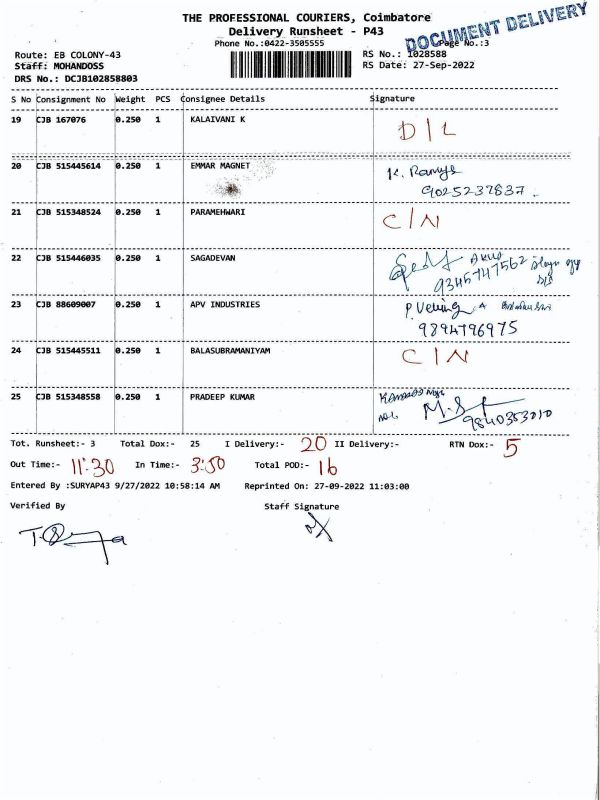 THE PROFESSIONAL COURIERS, Coimbatore
Delivery Runsheet - P43
DOCUMENT DELIVERY
Phone No.:0422-3505555
Page No.:3
Route: EB COLONY-43
RS No.: 1028588
Staff: MOHANDOSS
RS Date: 27-Sep-2022
DRS No.: DCJB102858803
S No Consignment No Weight PCS Consignee Details Signature
19 CJB 167076 0.250 1 KALAIVANI K D/L
20 CJB 515445614 0.250 1 EMMAR MAGNET K. Ramya
9025237837.
21 CJB 515348524 0.250 1 PARAMEHWARI C/N
22 CJB 515446035 0.250 1 SAGADEVAN
9345747562
23 CJB 88609007 0.250 1 APV INDUSTRIES
9894796975
24 CJB 515445511 0.250 1 BALASUBRAMANIYAM C/N
25 CJB 515348558 0.250 1 PRADEEP KUMAR
9840353010
Tot. Runsheet:- 3 Total Dox:- 25 I Delivery:- 20 II Delivery:- RTN Dox:- 5
Out Time:- 11:30 In Time:- 3:50 Total POD:- 16
Entered By :SURYAP43 9/27/2022 10:58:14 AM Reprinted On: 27-09-2022 11:03:00
Verified By Staff Signature